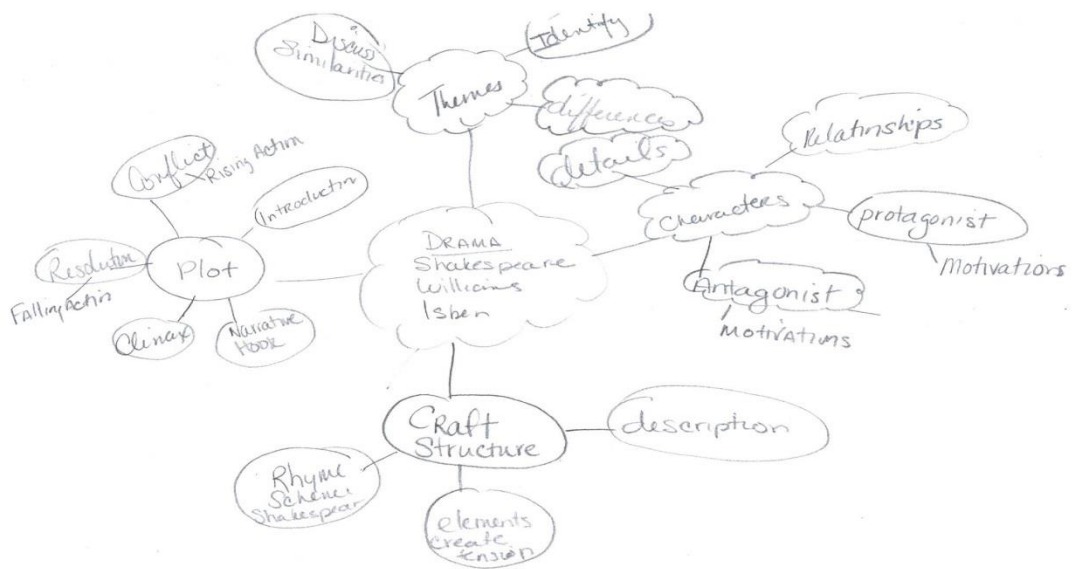 Discuss
Similarities
Identify
Themes
differences
details
Relatinships
Characters
protagonist
Motivations
Antagonist
MOTIVATIONS
Conflict
Rising Action
Introduction
Resolution
Plot
Falling Actin
Climax
Narrative
Hook
DRAMA
Shakespeare
Williams
Isben
CRaft
Structure
description
Rhyme
Scheme
Shakespear
elements
create
tension